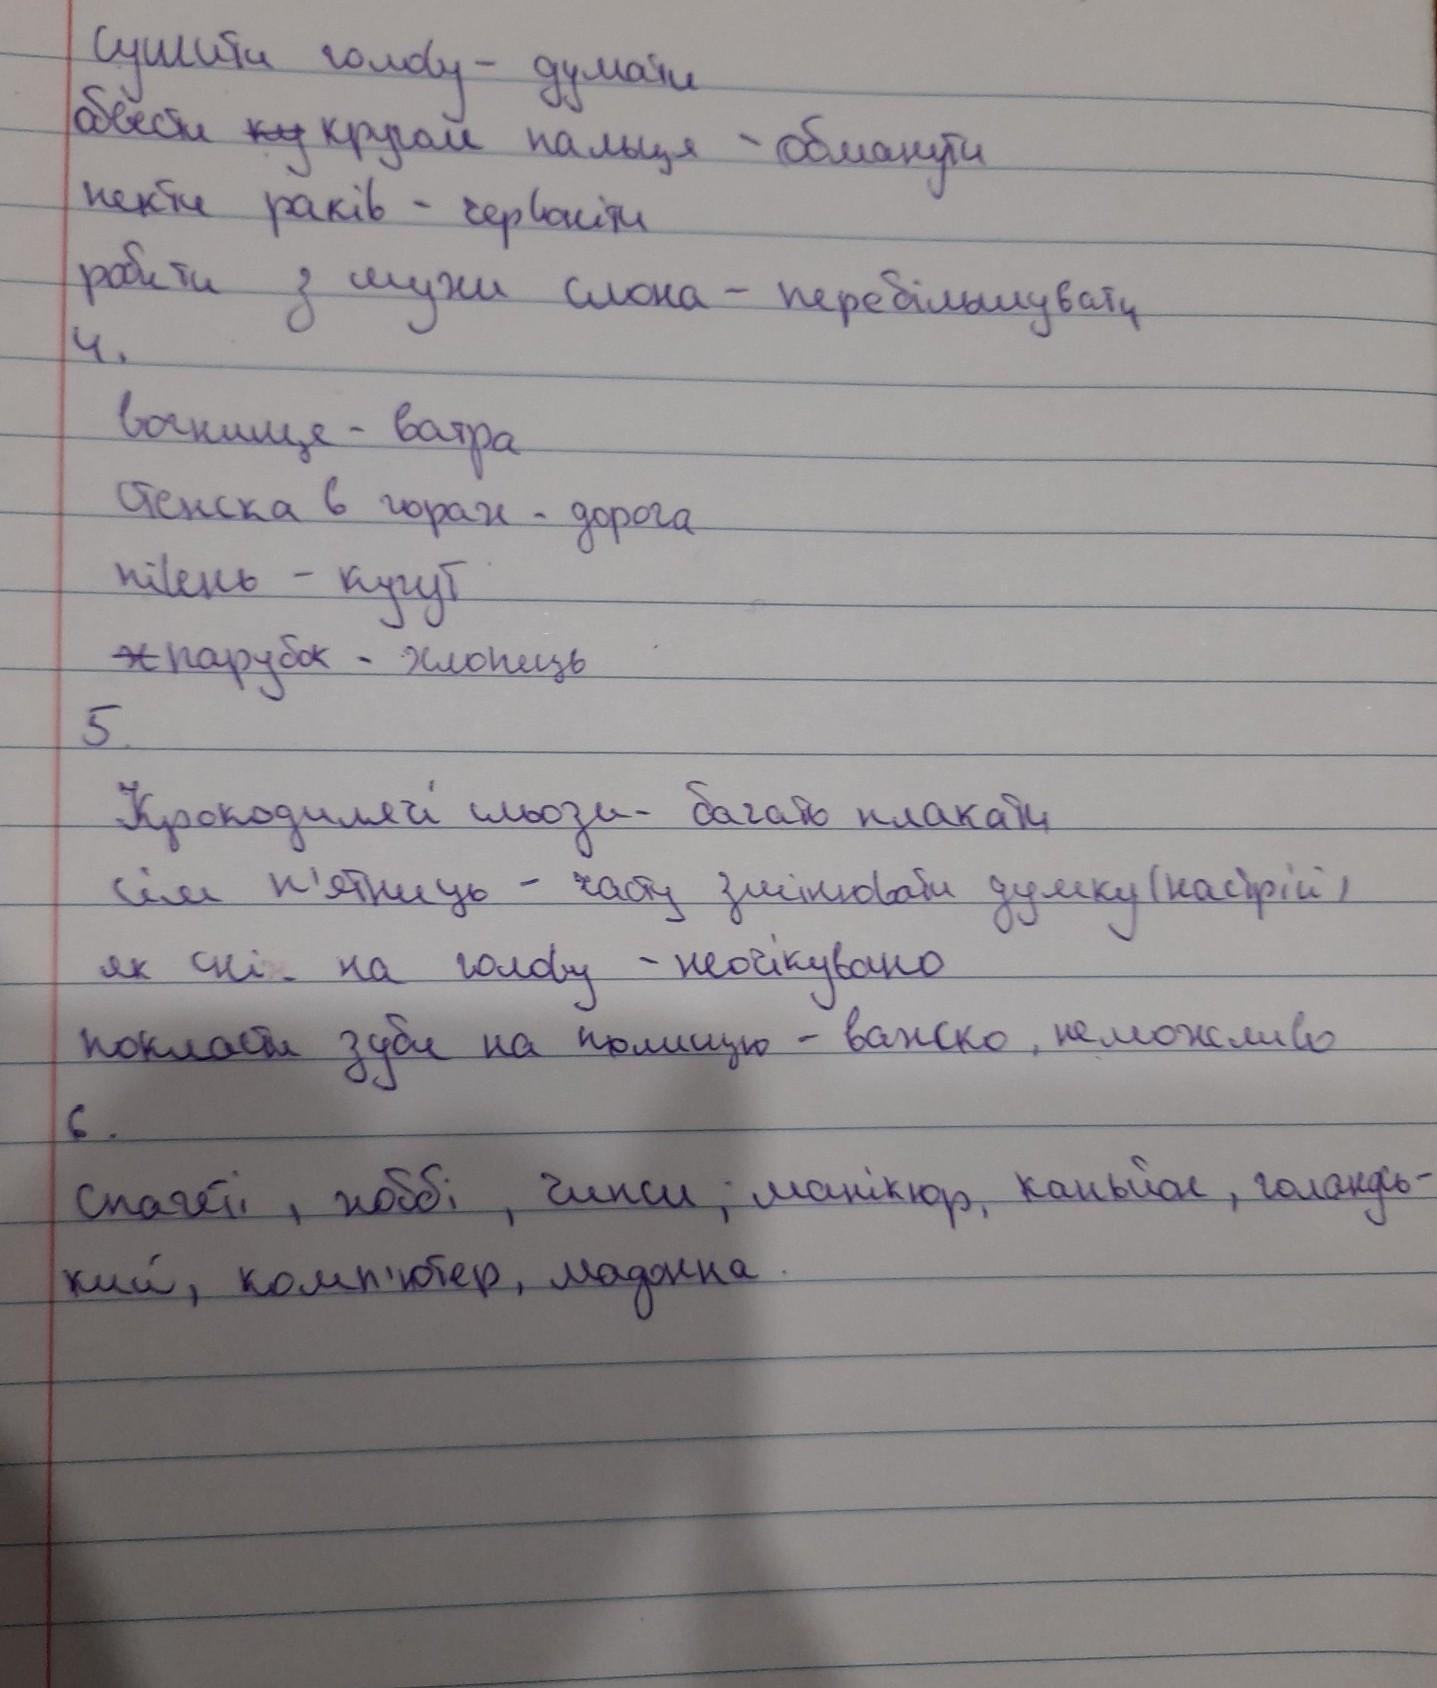 сушити голову - думати
обвести кругом пальця - обманути
пекти раків - червоніти
робити з мухи слона - перебільшувати
4.
вогнище - ватра
стежка в горах - дорога
півень - кугут
парубок - хлопець
5.
Крокодилячі сльози - багато плакати
сім п'ятниць - часту змінювати думку (настрій)
як сніг на голову - неочікувано
покласти зуби на полицю - важко, неможливо
6.
спагеті, хоббі, чипси, манікюр, каньйон, голандсь-
кий, комп'ютер, мадонна.